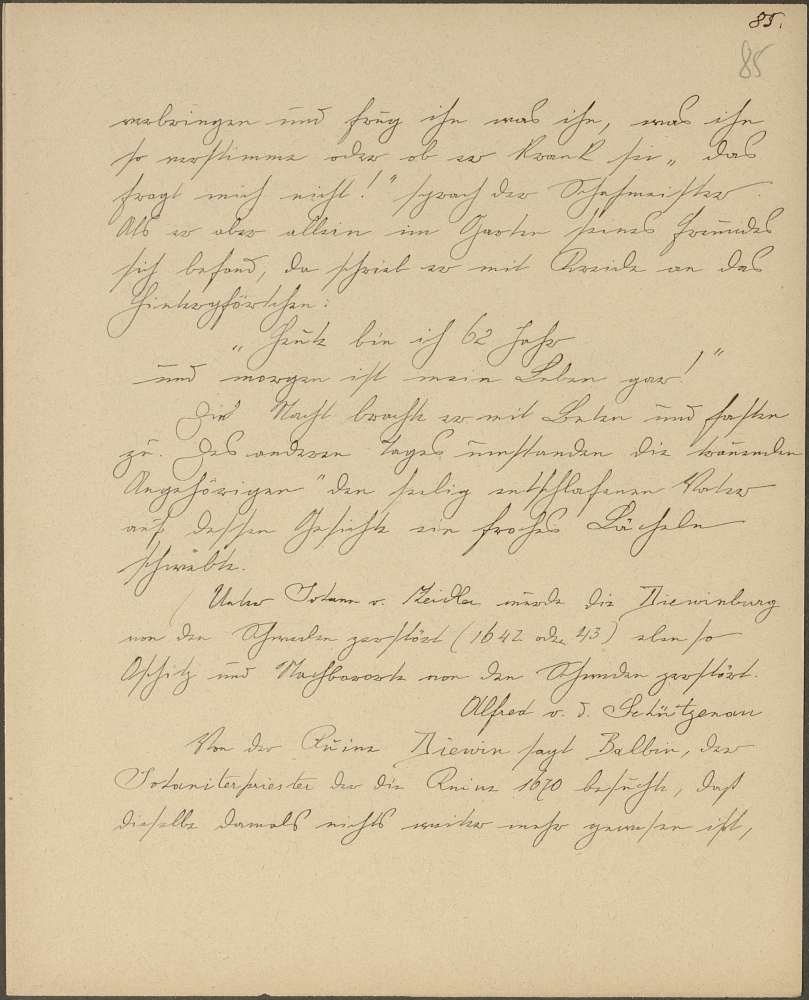 85.
85
verbringen und frug ihn was ihn, was ihn
so verstimme oder ob er krank sei „das
fragt mich nicht!“ sprach der Schatzmeister.
Als er aber allein im Garten seines Freundes
sich befand, da schrieb er mit Kreide an das
Hinterpförtchen:
„Heute bin ich 62 Jahr
und morgen ist mein Leben gar!“
Die Nacht brachte er mit Beten und fasten
zu. Des anderen Tages umstanden die trauernden
Angehörigen "den seelig entschlafenen Vater
auf dessen Gesichte ein frohes Lächeln
schwebte.
Unter Johann v. Zeidler wurde die Diewinburg
von den Schweden zerstört (1642 oder 43) eben so
Oschitz und Nachbarorte von den Schweden zerstört.
Alfred v. d. Schützenau
Von der Ruine Diewin sagt Balbin, der
der die Ruine 1670 besuchte, daß
dieselbe damals nichts weiter mehr gewesen ist,